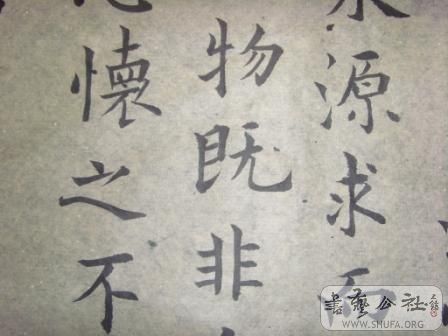 源求
物既非
懷之不
書藝公社
WWW.SHUFA.ORG